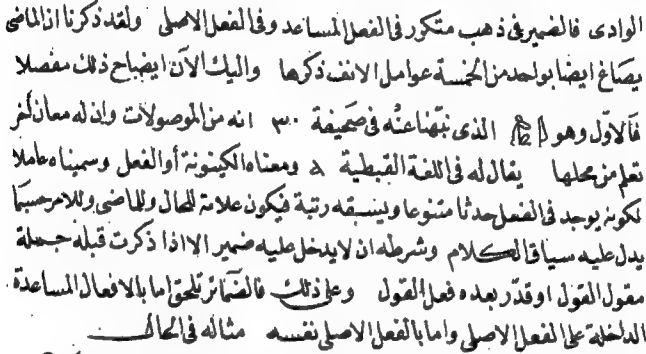 الوادى فالضمير فى ذهب متكرر فى الفعل المساعد وفى الفعل الاصلى ولقد ذكرنا ان الماضى
يصاغ ايضا بواحد من الخمسة عوامل الانف ذكرها واليك الآن ايضاح ذلك مفصلا
فالاول وهو الذى نبّهنا عنه فى صحيفة ٣٠ انه من الموصولات وان له معان أخر
تعلم من محلها يقال له فى اللغة القبطية ومعناه الكينونة أو الفعل وسميناه عاملا
لكونه يوجد فى الفعل حدثا متنوعا وينسبقه رتبة فيكون علامة للحال وللماضى وللامر حسبما
يدل عليه سياق الكلام وشرطه ان لا يدخل عليه ضمير الا اذا ذكرت قبله جملة
مقول القول او قدّر بعده فعل القول وعلى ذلك فالضمائر تلحق اما بالافعال المساعدة
الداخلة على الفعل الاصلى واما بالفعل الاصلى نفسه مثاله فى الحال